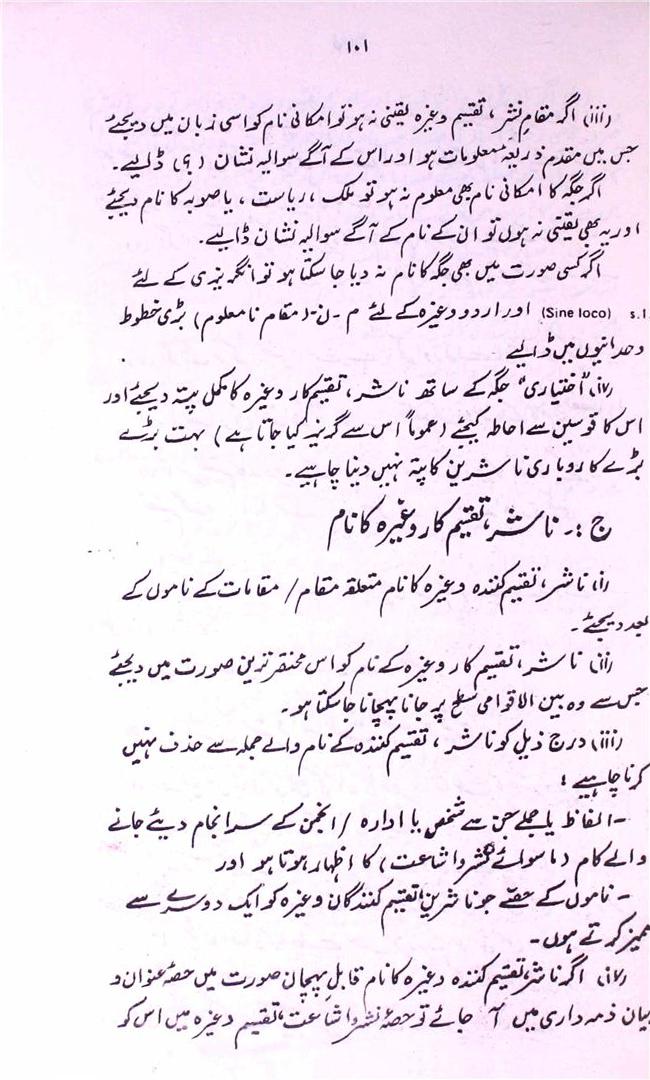 ۱۰۱
(iii) اگر مقامِ نشر، تقسیم وغیرہ یقینی نہ ہو تو امکانی نام کو اسی زبان میں دیجئے
جس میں مقدم ذریعۂ معلومات ہو اور اس کے آگے سوالیہ نشان (؟) ڈالیے۔
اگر جگہ کا امکانی نام بھی معلوم نہ ہو تو ملک، ریاست، یا صوبہ کا نام دیجئے
اور یہ بھی یقینی نہ ہوں تو ان کے نام کے آگے سوالیہ نشان ڈالیے۔
اگر کسی صورت میں بھی جگہ کا نام نہ دیا جا سکتا ہو تو انگریزی کے لئے
s.l. (Sine loco) اور اردو وغیرہ کے لئے م-ن-(مقام نامعلوم) بڑی خطوط
وحدانیوں میں ڈالیے
(iv) "اختیاری" جگہ کے ساتھ ناشر، تقسیم کار وغیرہ کا مکمل پتہ دیجئے اور
اس کا قوسین سے احاطہ کیجئے (عموماً اس سے گریز کیا جاتا ہے) بہت بڑے
بڑے کاروباری ناشرین کا پتہ نہیں دینا چاہیے۔
ج :۔ ناشر، تقسیم کار وغیرہ کا نام
(i) ناشر، تقسیم کنندہ وغیرہ کا نام متعلقہ مقام / مقامات کے ناموں کے
بعد دیجئے۔
(ii) ناشر، تقسیم کار وغیرہ کے نام کو اس مختصر ترین صورت میں دیجئے
جس سے وہ بین الاقوامی سطح پر جانا پہچانا جا سکتا ہو۔
(iii) درج ذیل کو ناشر، تقسیم کنندہ کے نام والے جملہ سے حذف نہیں
کرنا چاہیے :
- الفاظ یا جملے جن سے شخص یا ادارہ / انجمن کے سرانجام دیئے جانے
والے کام (ماسوائے نشر و اشاعت) کا اظہار ہوتا ہو اور
- ناموں کے حصّے جو ناشرین، تقسیم کنندگان وغیرہ کو ایک دوسرے سے
ممیز کرتے ہوں۔
(iv) اگر ناشر، تقسیم کنندہ وغیرہ کا نام قابلِ پہچان صورت میں حصۂ عنوان و
بیان ذمہ داری میں آ جائے تو حصۂ نشر و اشاعت، تقسیم وغیرہ میں اس کو